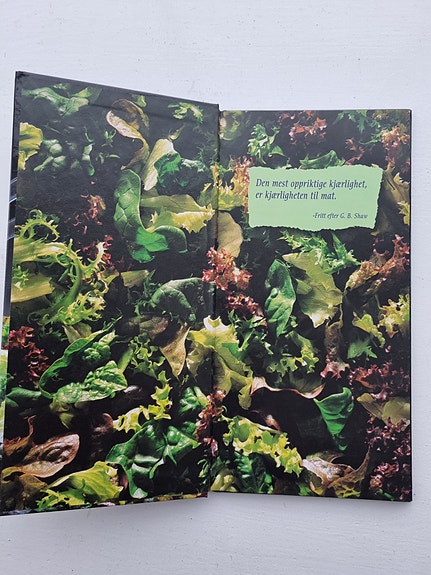 Den mest oppriktige kjærlighet,
er kjærligheten til mat.
-Fritt efter G. B. Shaw